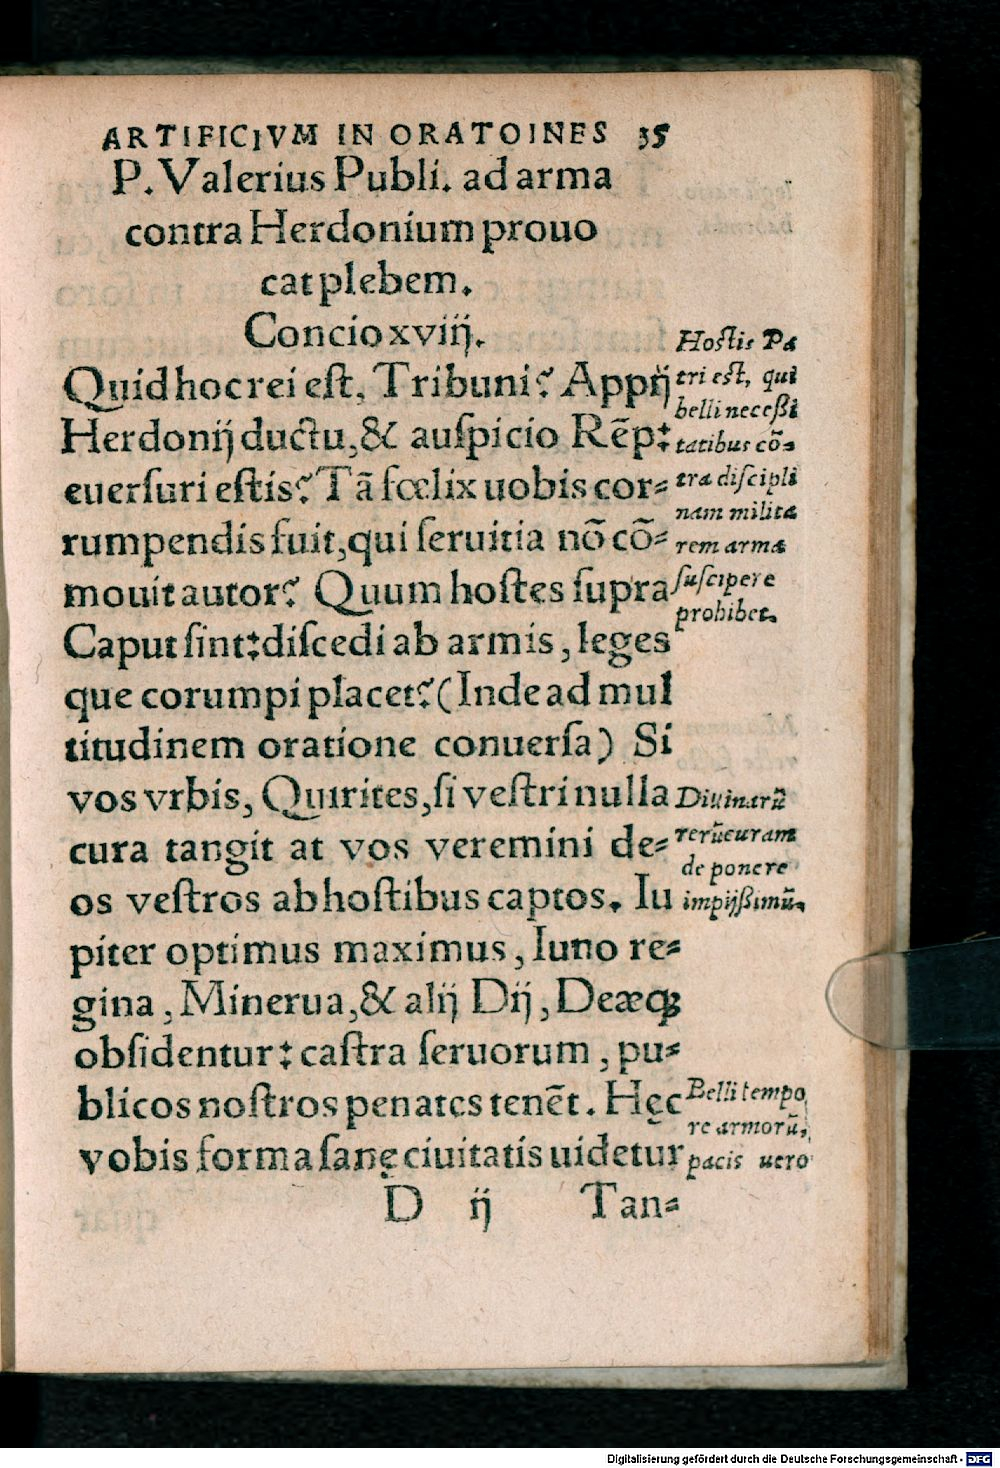 ARTIFICIVM IN ORATOINES 35
P. Valerius Publi. ad arma
contra Herdonium prouo
cat plebem.
Concio xviij.
Quid hoc rei eſt, Tribuni? Appij
Herdonij ductu, & auſpicio Rēp:
euerſuri eſtis? Tā fœlix uobis cor-
rumpendis fuit, qui ſeruitia nō cō-
mouit autor? Quum hoſtes ſupra
Caput ſint: diſcedi ab armis, leges
que corumpi placet? (Inde ad mul
titudinem oratione conuerſa) Si
vos vrbis, Quirites, ſi veſtri nulla
cura tangit at vos veremini de-
os veſtros ab hoſtibus captos. Iu
piter optimus maximus, Iuno re-
gina, Minerua, & alij Dij, Deæq;
obſidentur: caſtra ſeruorum, pu-
blicos noſtros penates tenēt. Hęc
vobis forma ſanę ciuitatis uidetur
D ij Tan-
Hoſtis Pa
tri eſt, qui
belli neceßi
tatibus cō-
tra diſcipli
nam milita
rem arma
ſuſcipere
prohibet.
Diuinarū
rerū curam
deponere
impijßimū.
Belli tempo
re armorū,
pacis uero
Digitalisierung gefördert durch die Deutsche Forschungsgemeinschaft - DFG